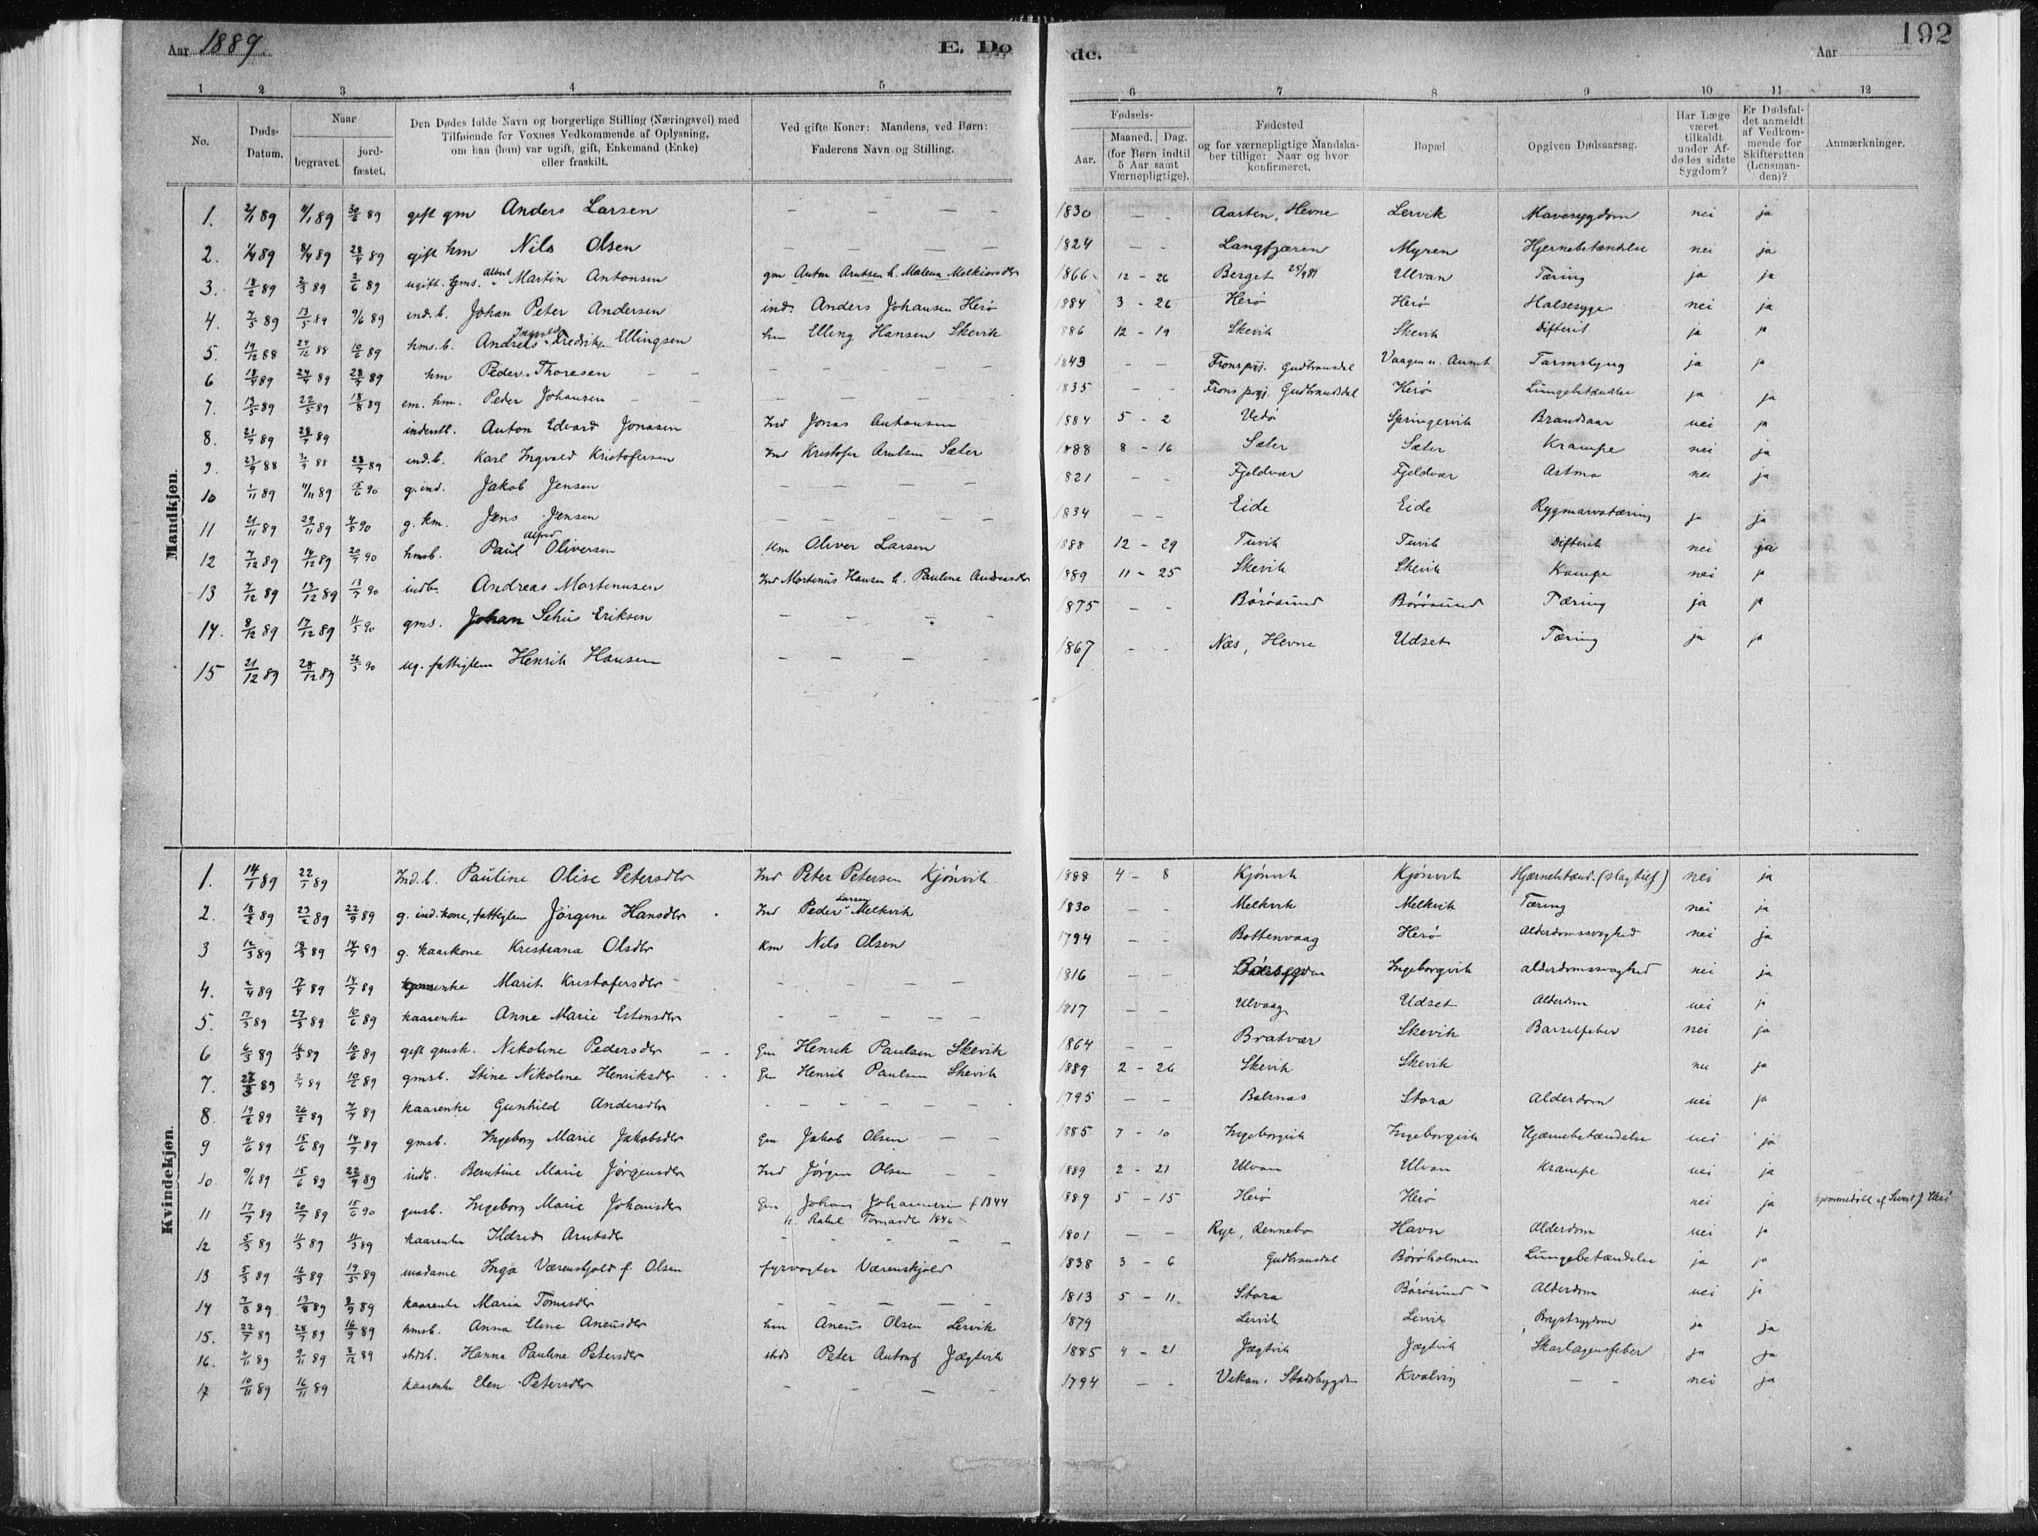 Aar 1889. E. Dø de. Aar 192
1 2 3 4 5 6 7 8 9 10 11 12
No. Døds-Datum. Naar begravet. jordfæstet. Den Dødes fulde Navn og borgerlige Stilling (Næringsvei) med Tilføiende for Voxnes Vedkommende af Oplysning, om han (hun) var ugift, gift, Enkemand (Enke) eller fraskilt. Ved gifte Koner: Mandens, ved Børn: Faderens Navn og Stilling. Fødsels- Aar. Maaned. Dag. (for Børn indtil 5 Aar samt Værnepligtige). Fødested og for værnepligtige Mandskaber tillige: Naar og hvor konfirmeret. Bopæl Opgiven Dødsaarsag. Har Læge været tilkaldt under Afdødes sidste Sygdom? Er Dødsfaldet anmeldt af Vedkommende for Skifteretten (Lensmanden)? Anmærkninger.
Mandkjøn.
1. 2/1 89 11/1 89 30/6 89 gift gm Anders Larsen — — — — 1830 — — Aasten, Hevne Lervik Mavesygdom nei ja
2. 1/4 89 8/4 89 28/4 89 gift hm Nils Olsen — — — — 1824 — — Langfjæren Myren Hjernebetændelse nei ja
3. 18/2 89 2/3 89 2/6 89 ugift. Gms. Albert Martin Antonsen gm Anton Arntsen h. Malena Melkiorsdr 1866 12 - 26 Berget Ulvan Tæring ja ja
4. 7/5 89 13/5 89 9/6 89 ind. b. Johan Peter Andersen ind. Anders Johansen Herø 1884 3 - 26 Herø Herø Halsesyge nei ja
5. 19/12 88 24/12 88 10/6 89 hms. b. Andreas Ingvald Fredrik Ellingsen hm Elling Hansen Skevik 1886 12 - 19 Skevik Skevik Difterit ja ja
6 18/4 89 24/4 89 28/4 89 hm Peder Thoresen — — — — 1843 — — Frons prgj. Gudbransdal Vaagen ja ja
7. 13/5 89 22/5 89 18/8 89 em. hm. Peder Johansen — — — — 1835 — — Frons prgj. Gudbrandsdal Herø Lungebetændelse ja ja
8. 21/7 89 28/7 89 inderstb. Anton Edvard Jonasen Ind Jonas Antonsen 1884 5 - 2 Vedø Springervik Brandsaar nei ja
9. 23/9 88 88 28/7 89 ind. b. Karl Ingvald Kristofersen Ind Kristofer Arntsen Sæter 1888 8 - 16 Sæter Sæter Krampe nei ja
10 1/11 89 11/11 89 15/6 90 g. ind. Jakob Jensen — — — — 1821 — — Fjeldvær Fjeldvær Astma nei ja
11 21/11 89 29/11 89 4/5 90 g. km. Jens Jensen — — — — 1834 — — Eide Eide Rygmarvstæring ja ja
12 7/12 89 14/12 89 20/7 90 hmsb. Paul Alfred Oliversen Hm Oliver Larsen 1888 12 - 29 Tuvik Tuvik Difterit nei ja
13 7/12 89 13/12 89 13/7 90 indb. Andreas Martenusen Ind Mortenus Hansen h. Pauline Andreasdr 1889 11 - 25 Skevik Skevik Krampe nei ja
14. 8/12 89 17/12 89 11/5 90 gms. Johan Eriksen — — — 1875 — — Børøsund Børøsund Tæring ja ja
15 21/12 89 28/12 89 26/5 90 ug. fattiglem Henrik Hansen — — — — 1867 — — Næs, Hevne Udset Tæring ja ja
Kvindekjøn.
1. 14/1 89 22/1 89 Ind. b. Pauline Olise Petersdtr Ind Peter Petersen Kjönvik 1888 4 - 8 Kjönvik Kjönvik Hjærnebetænd. nei ja
2. 18/2 89 23/2 89 22/9 89 g. ind. kone, fattiglem Jörgine Hansdtr Ind Peder Larsen Melkvik 1830 — — Melkvik Melkvik Tæring nei ja
3 12/3 89 18/3 89 14/7 89 g. kaarkone Kristiana Olsdtr Km Nils Olsen 1794 — — Bottenvaag Herø Alderdomssvaghed nei ja
4. 2/4 89 17/4 89 14/7 89 enke Marit Kristofersdtr — — — — 1816 — — Ingeborgvik alderdomssvaghed nei ja
5. 17/3 89 27/3 89 10/6 89 kaarenke Anne Marie Estensdtr — — — — 1817 — — Ulvaag Udset Alderdom nei ja
6 6/3 89 16/3 89 10/6 89 gift gmsk. Nikoline Pedersdtr Gm Henrik Paulsen Skevik 1864 — — Bratvær Skevik Barselfeber nei ja
7. 28/3 89 89 10/6 89 gmsb. Stine Nikoline Henriksdtr Gm Henrik Paulsen Skevik 1889 2 - 26 Skevik Skevik nei ja
8. 19/2 89 26/2 89 7/7 89 kaarenke Gunhild Andersdtr — — — — 1795 — — Balsnæs Stora Alderdom nei ja
9 6/6 89 15/6 89 14/7 89 gmsb. Ingeborg Marie Jakobsdtr Gm Jakob Olsen — — 1885 7 - 10 Ingeborgvik Ingeborgvik Hjærnebetændelse nei ja
10. 9/6 89 15/6 89 22/9 89 indb. Berntine Marie Jørgensdtr Ind Jörgen Olsen — — 1889 2 - 21 Ulvan Ulvan Krampe nei ja
11 17/7 89 20/7 89 15/6 90 gmsb. Ingeborg Marie Johansdtr Gm Johans Johannesen f 1844 h. Rakel Tomasdtr 1846 1889 5 - 15 Herø Herø nei ja hjemmedøbt af Sivert J. Herø
12 5/3 89 11/3 89 11/3 89 kaarenke Ildrid Arntsdtr — — — — 1801 — — Rye, Rennebo Havn Alderdom nei ja
13 5/3 89 12/3 89 19/5 89 madame Inga Værenskjold f Olsen fyrvogter Værenskjold 1838 3 - 6 Gudbransdal Børøholmen Lungebetændelse ja ja
14 7/8 89 13/8 89 8/9 89 kaarenke Maria Tomasdtr — — — — 1813 5 - 11. Stora Børøsund Alderdom nei ja
15. 22/7 89 28/7 89 16/9 89 hmsb. Anna Elene Aneusdtr hm Aneus Olsen Lervik 1879 Lervik Lervik Brystsygdom ja ja
16. 4/11 89 9/11 89 8/12 89 stdsb. Hanna Pauline Petersdtr stds Peter Antonf Jægtvik 1885 4 - 21 Jægtvik Jægtvik Skarlagensfeber ja ja
17 10/11 89 16/11 89 kaarenke Elen Petersdtr — — — — 1794 — — Vikan. Stadsbygden Kvalvig — — nei ja